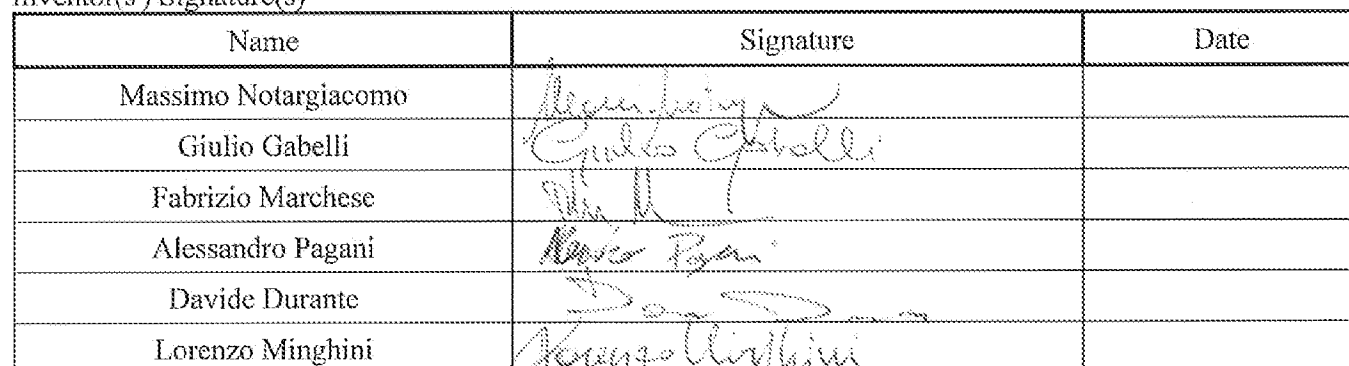 Inventor(s') Signature(s)
Name Signature Date
Massimo Notargiacomo
Giulio Gabelli Giulio Gabelli
Fabrizio Marchese
Alessandro Pagani
Davide Durante
Lorenzo Minghini Lorenzo Minghini